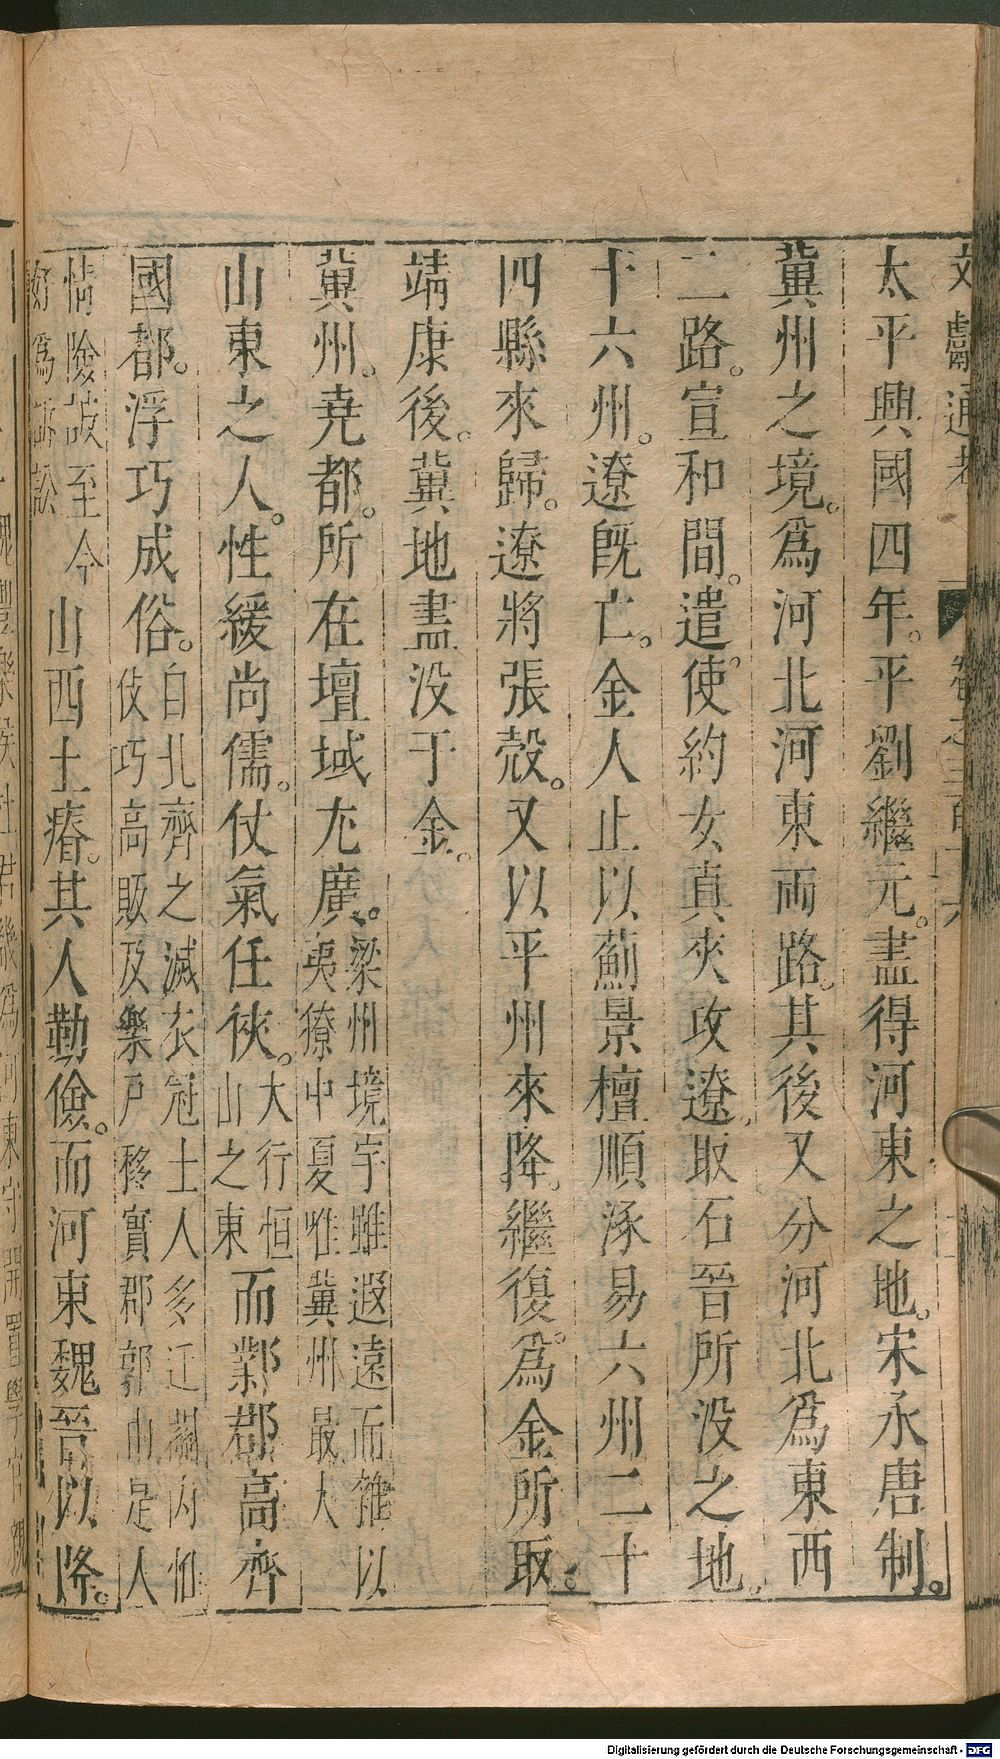 文獻通考 卷之三百十六
太平興國四年。平劉繼元。盡得河東之地。宋承唐制。
冀州之境。爲河北河東兩路。其後又分河北爲東西
二路。宣和間。遣使約女真夾攻遼。取石晉所没之地。
十六州。遼旣亡。金人止以薊景檀順涿易六州二十
四縣來歸。遼將張瑴。又以平州來降。繼復。爲金所取。
靖康後。冀地盡没于金。
冀州。堯都。所在壇域尢廣。梁州境宇雖遐遠而雜以夷獠中夏唯冀州最大
山東之人。性緩尚儒。仗氣任俠。大行恒山之東而鄴郡高齊
國都。浮巧成俗。自北齊之滅衣冠士人多迁關内惟伎巧啇販及樂戸移實郡郭由是人
情險詖至今好爲訴訟山西土瘠。其人勤儉。而河東魏晉以降。
Digitalisierung gefördert durch die Deutsche Forschungsgemeinschaft - DFG